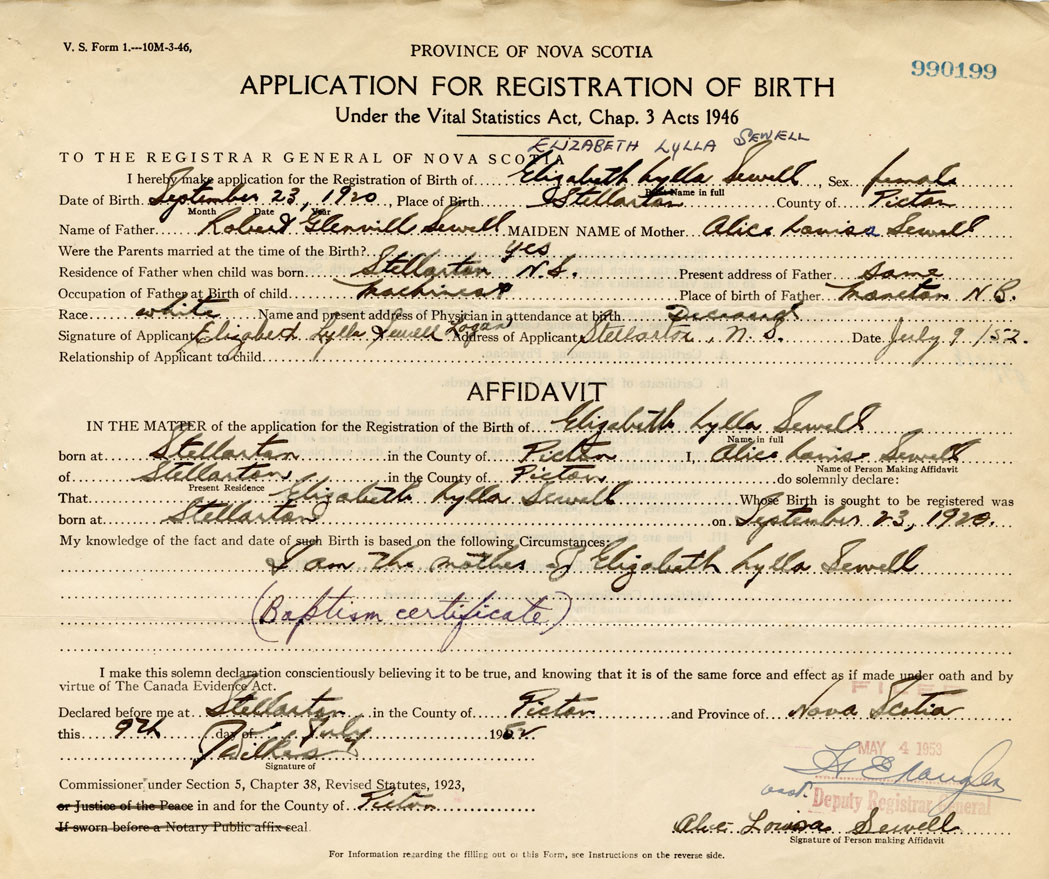 V. S. Form 1.---10M-3-46,
PROVINCE OF NOVA SCOTIA
990199
APPLICATION FOR REGISTRATION OF BIRTH
Under the Vital Statistics Act, Chap. 3 Acts 1946
ELIZABETH LYLLA SEWELL
TO THE REGISTRAR GENERAL OF NOVA SCOTIA
I hereby make application for the Registration of Birth of Elizabeth Lylla Sewell, Sex female
Name in full
Date of Birth September 23, 1920, Place of Birth Stellarton County of Pictou
Month Date Year
Name of Father Robert Glenvill Sewell MAIDEN NAME of Mother Alice Louisa Sewell
Were the Parents married at the time of the Birth? yes
Residence of Father when child was born Stellarton N.S. Present address of Father same
Occupation of Father at Birth of child machinest Place of birth of Father Moncton N.B.
Race white Name and present address of Physician in attendance at birth Deceased
Signature of Applicant Elizabeth Lylla Sewell Logan Address of Applicant Stellarton, N.S. Date July 9/52.
Relationship of Applicant to child
AFFIDAVIT
IN THE MATTER of the application for the Registration of Birth of Elizabeth Lylla Sewell
Name in full
born at Stellarton in the County of Pictou I, Alice Louise Sewell
Name of Person Making Affidavit
of Stellarton in the County of Pictou do solemnly declare:
Present Residence
That Elizabeth Lylla Sewell Whose Birth is sought to be registered was
born at Stellarton on September 23, 1920.
My knowledge of the fact and date of such Birth is based on the following Circumstances:
I am the mother of Elizabeth Lylla Sewell
(Baptism certificate)
I make this solemn declaration conscientiously believing it to be true, and knowing that it is of the same force and effect as if made under oath and by
virtue of The Canada Evidence Act.
FILED
Declared before me at Stellarton in the County of Pictou and Province of Nova Scotia
this 9th day of July 1952
MAY 4 1953
Signature of
Commissioner under Section 5, Chapter 38, Revised Statutes, 1923,
Deputy Registrar General
or Justice of the Peace in and for the County of Pictou
If sworn before a Notary Public affix seal.
Alice Louisa Sewell
Signature of Person making Affidavit
For Information regarding the filling out of this Form, see Instructions on the reverse side.